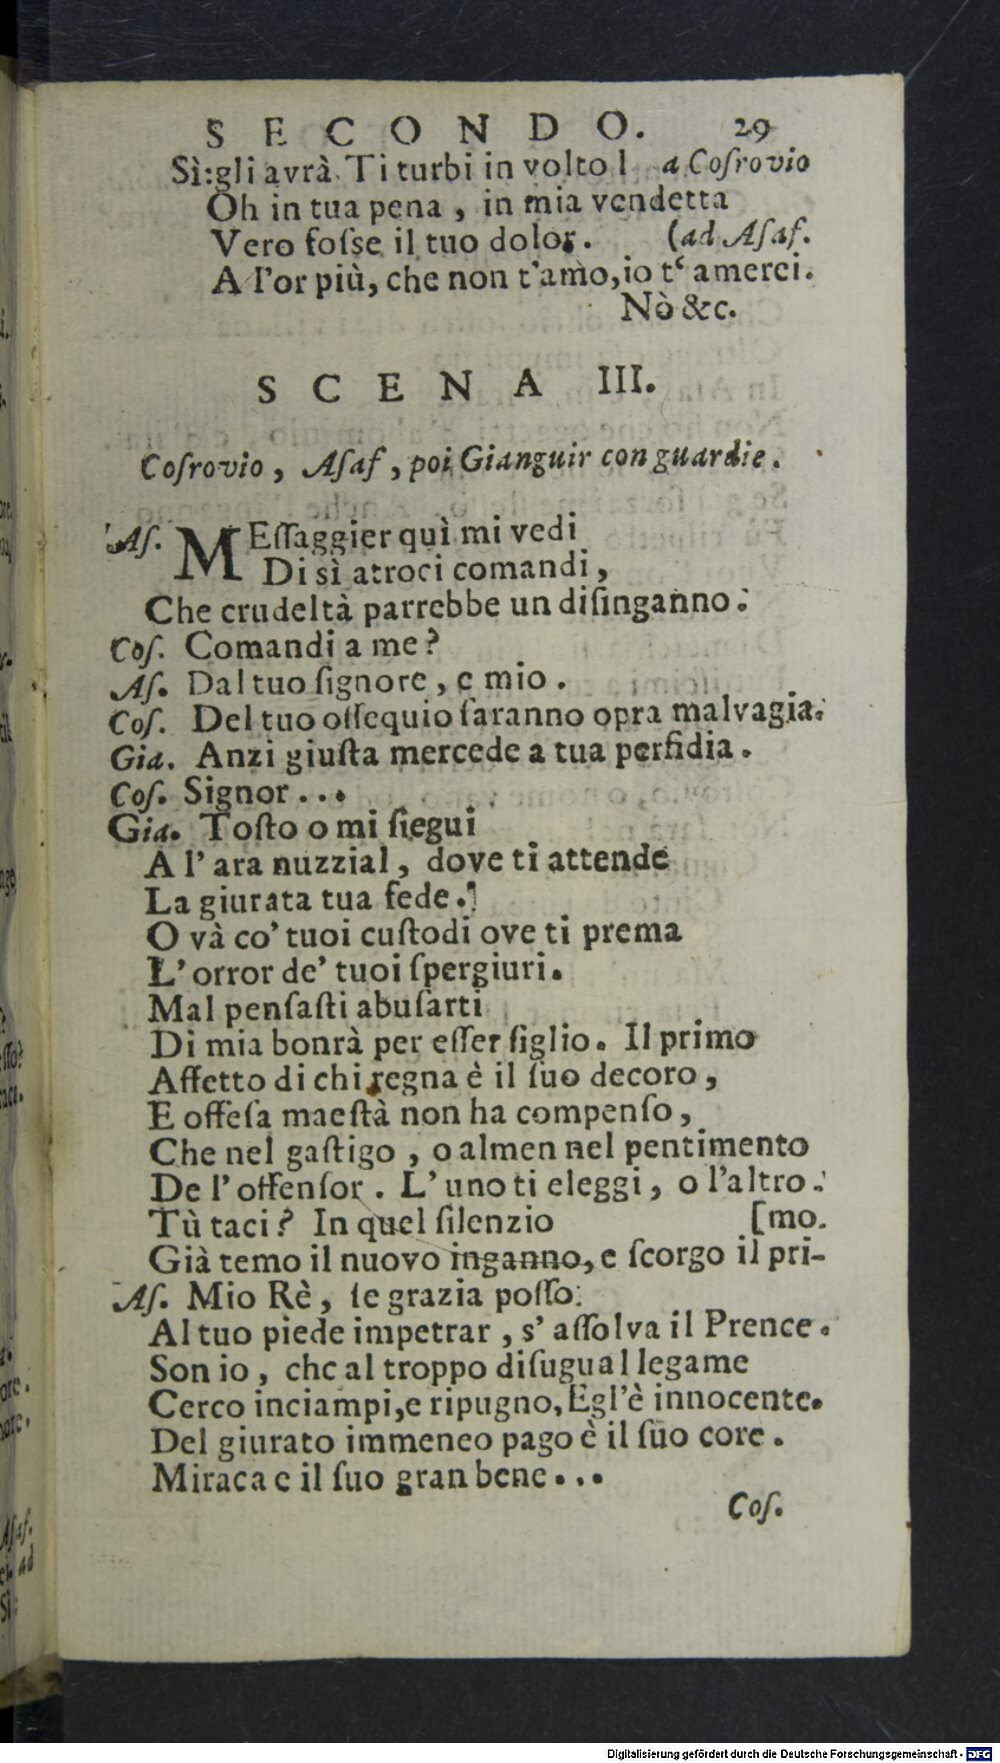 SECONDO. 29
Sì: gli avrà. Ti turbi in volto l a Coſrovio
Oh in tua pena, in mia vendetta
Vero foſse il tuo dolor. (ad Aſaf.
A l'or più, che non t'amo, io t‘ amerei.
Nò &c.
SCENA III.
Coſrovio, Aſaf, poi Gianguir con guardie.
Aſ. MEſſaggier quì mi vedi
Di sì atroci comandi,
Che crudeltà parrebbe un diſinganno.
Coſ. Comandi a me?
Aſ. Dal tuo ſignore, e mio.
Coſ. Del tuo oſſequio ſaranno opra malvagia.
Gia. Anzi giuſta mercede a tua perfidia.
Coſ. Signor...
Gia. Toſto o mi ſiegui
A l' ara nuzzial, dove ti attende
La giurata tua fede.
O và co' tuoi cuſtodi ove ti prema
L' orror de' tuoi ſpergiuri.
Mal penſaſti abuſarti
Di mia bonrà per eſſer figlio. Il primo
Affetto di chi regna è il ſuo decoro,
E offeſa maeſtà non ha compenſo,
Che nel gaſtigo, o almen nel pentimento
De l' offenſor. L' uno ti eleggi, o l'altro.
Tù taci? In quel ſilenzio [mo.
Già temo il nuovo inganno, e ſcorgo il pri-
Aſ. Mio Rè, ſe grazia poſſo
Al tuo piede impetrar, s' aſſolva il Prence.
Son io, che al troppo diſugual legame
Cerco inciampi, e ripugno, Egl'è innocente.
Del giurato immeneo pago è il ſuo core.
Miraca e il ſuo gran bene...
Coſ.
Digitalisierung gefördert durch die Deutsche Forschungsgemeinschaft - DFG